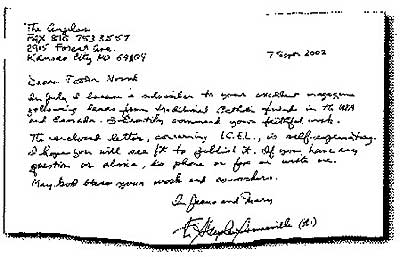 The Angelus
Fax 816 753 3557
2915 Forest Ave.
Kansas City MO 64109
7 Sept 2002
Dear Father Novak
In July I became a subscriber to your excellent magazine
following leads from traditional Catholic friends in the USA
and Canada. I heartily commend your faithful work.
The enclosed letter, concerning ICEL, is self-explanatory.
I hope you will see fit to publish it. If you have any
question or advice, do phone or fax or write me.
May God bless your work and co-workers.
In Jesus and Mary
Fr. Stephen Somerville